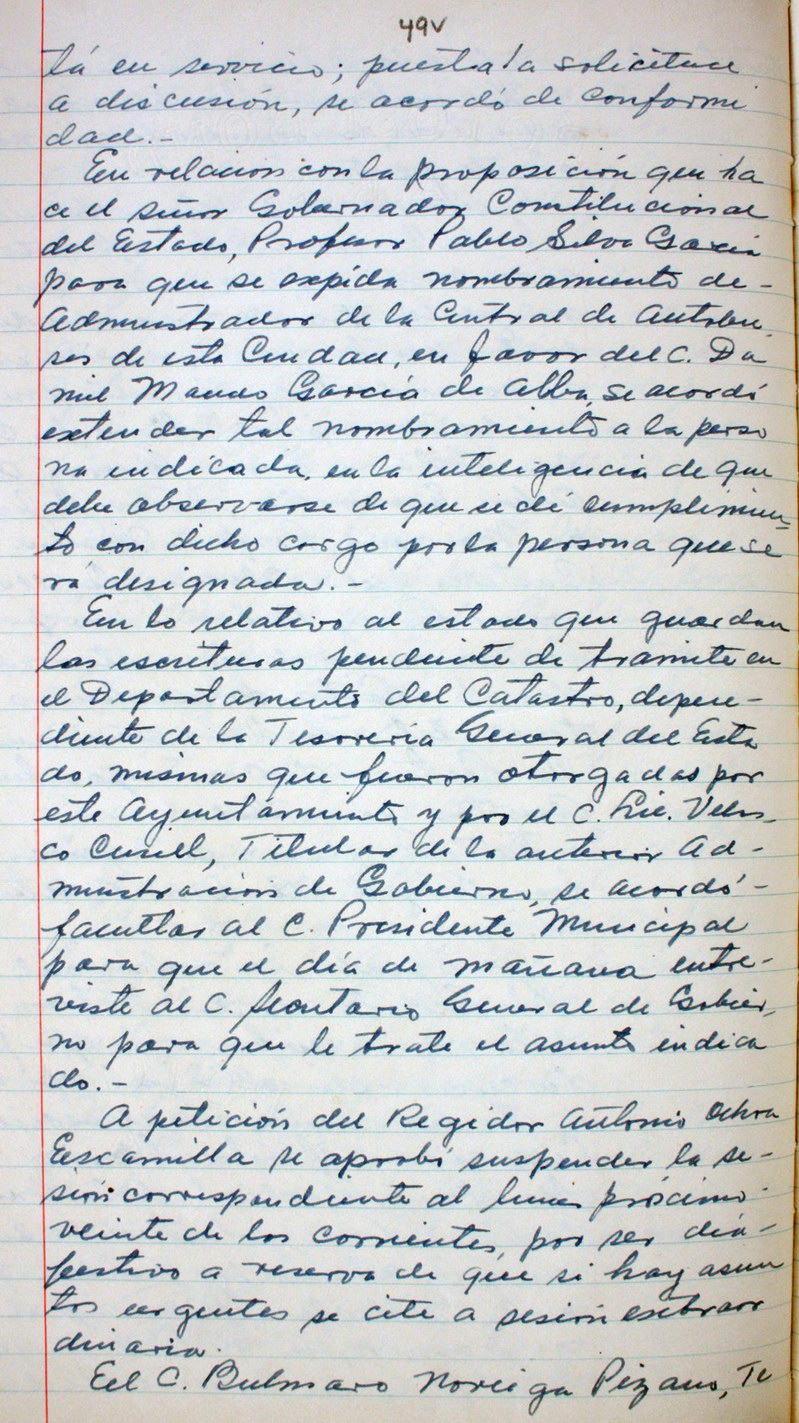 49v
tá en servicio; puesta la solicitud
a discusión, se acordó de conformi
dad.-
En relación con la proposición que ha
ce el señor Gobernador Constitucional
del Estado, Profesor Pablo Silva García
para que se expida nombramiento de-
Administrador de la Central de Autobu,
ses de esta Ciudad, en favor del C. Da
niel García de Alba, se acordó
extender tal nombramiento a la perso
na indicada, en la inteligencia de que
debe observarse de que se dé cumplimien-
to con dicho cargo por la persona que se
rá designada.-
En lo relativo al estado que guardan
las escrituras pendiente de tramite en
el Departamento del Catastro, depen-
diente de la Tesorería General del Esta
do, mismas que fueron otorgadas por
este Ayuntamiento y por el C. Lic. Velas-
co Curiel, Titular de la anterior Ad-
ministración de Gobierno, se acordó-
facultar al C. Presidente Municipal
para que el día de mañana entre-
viste al C. Secretario General de Gobier,
no para que le trate el asunto indica
do.-
A petición del Regidor Antonio Ochoa
Escamilla se aprobó suspender la se-
sión correspondiente al lunes próximo
veinte de los corrientes, por ser día-
festivo a reserva de que si hay asun
tos urgentes se cite a sesión extraor
dinaria.
El C. Bulmaro Noriega Pizano, Te